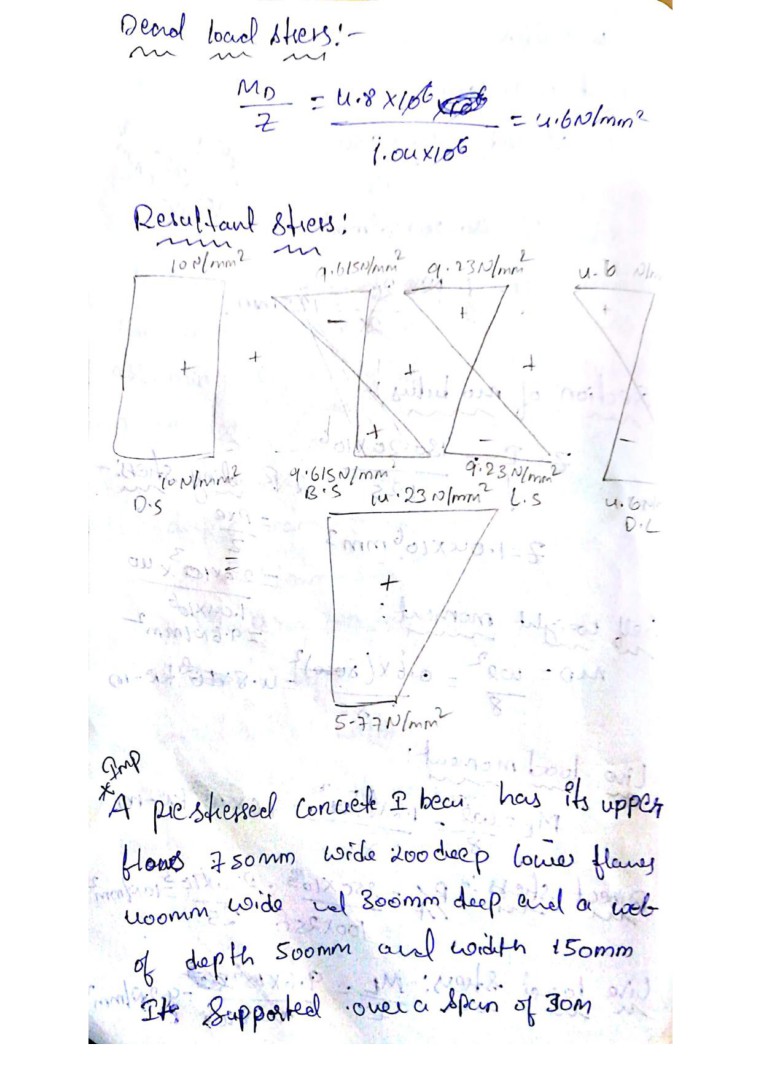 Dead load stress:-
MD/Z = 4.8 x 10⁶ / 1.04x10⁶ = 4.6N/mm²
Resultant Stress:
10N/mm² 9.615N/mm² 9.23N/mm² 4.6 N/m
+ + - + + + +
+ - -
10N/mm² 9.615N/mm² 9.23N/mm² 4.6
D.S B.S L.S D.L
14.23N/mm²
= +
5.77N/mm²
Imp
* A prestressed concrete I beam has its upper
flange 750mm wide 200 deep lower flange
400mm wide and 300mm deep and a web
of depth 500mm and width 150mm
It supported over a span of 30M